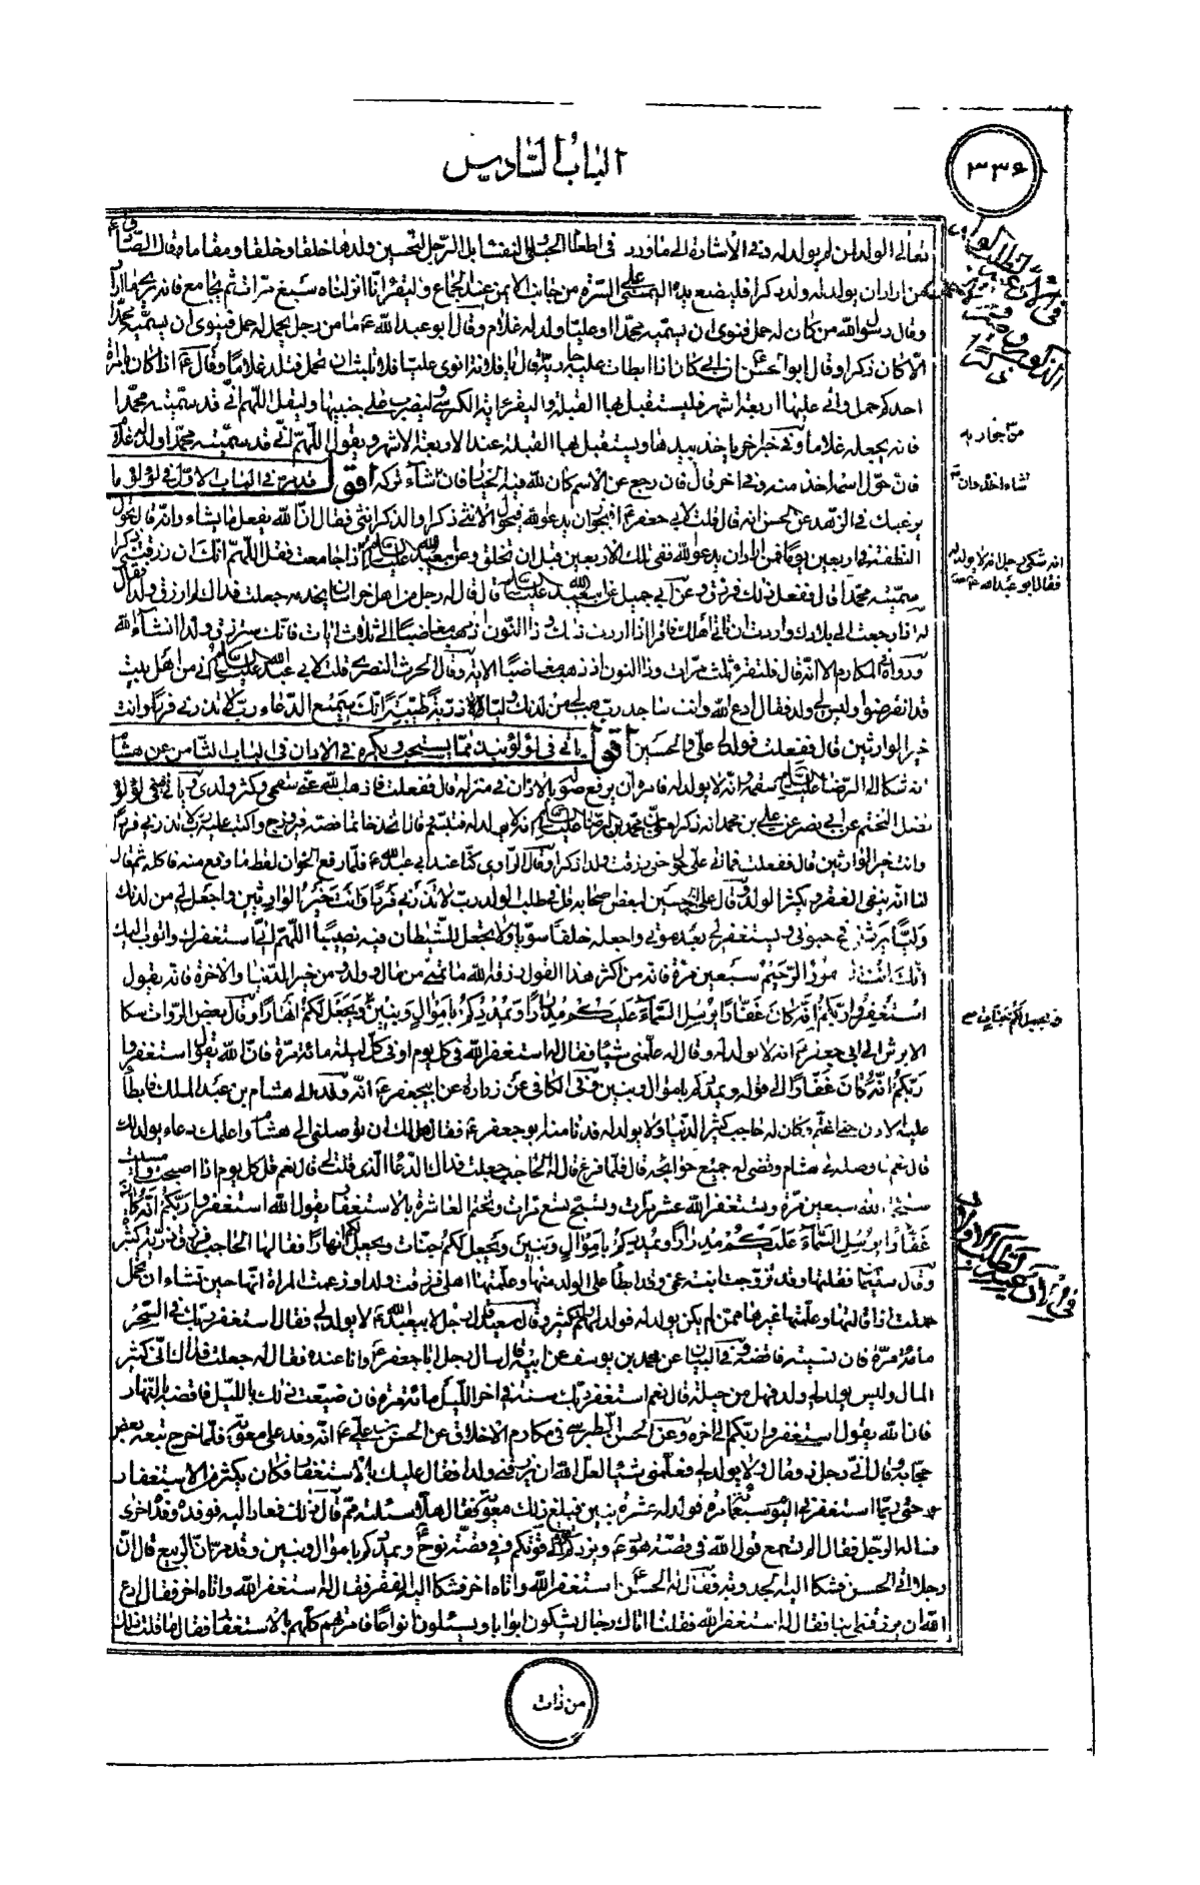 ٣٣٤
الباب السادس
تعالى الولد لمن لم يولد له وفى الاشارة الى ما ورد فى اطعام الحبلى النفساء بل الرجل لتحسين ولدها خلقا وخلقا ومقاما وقال الصادق
من اراد ان يولد له ولد ذكرا فليضع يده اليمنى على السرة من جانب الايمن عند الجماع وليقرء انا انزلناه سبع مرات ثم يجامع فانه
وقال رسول الله من كان له حمل فنوى ان يسميه محمدا او عليا ولد له غلام وقال ابو عبد الله ع ما من رجل يحمل له حمل فينوى ان يسميه محمدا
الا كان ذكرا وقال ابو الحسن ان ابى كان اذا ابطات عليه جارية قال يا فلانة انوى عليا فلا تلبث ان تحمل فتلد غلاما وقال ع اذا كان بامراة
احدكم حمل واتى عليها اربعة اشهر فليستقبل بها القبلة وليقرء اية الكرسى وليضرب على جنبيها وليقل اللهم انى قد سميته محمدا
فانه يجعله غلاما وفى خبر اخر ياخذ بيدها ويستقبل بها القبلة عند الاربعة الاشهر ويقول اللهم انى قد سميته محمدا ولد له غلام
فان حول اسمه اخذ منه وفى اخر قال فان رجع عن الاسم كان لله فيه الخيار فان شاء تركه اقول قد مر فى الباب الاول فى لؤلؤ ما
يرغبك فى الزهد عن الحسن انه قال قلت لابى جعفر ع افيجوز ان يدعو الله فيحول الانثى ذكرا والذكر انثى فقال ان الله يفعل ما يشاء وانه قال تحول
النطفة فى اربعين يوما فمن اراد ان يدعو الله ففى تلك الاربعين قبل ان تخلق وعن ابى عبد الله عليه السلام اذا جامعت فقل اللهم انك ان رزقتنى ذكرا
سميته محمدا قال ففعل ذلك فرزق وعن ابى جميل عن ابى عبد الله عليه السلام قال قال له رجل من اهل خراسان بالربذة جعلت فداك لم ارزق ولدا فقال
له اذا رجعت الى بلادك واردت ان تاتى اهلك فاقرأ اذا اردت ذلك وذا النون اذ ذهب مغاضبا الى ثلاث ايات فانك سترزق ولدا انشاء الله
ورواه فى المكارم الا انه قال فلتقرء ثلث مرات وذا النون اذ ذهب مغاضبا الاية وقال الحرث النصرى قلت لابى عبد الله عليه السلام انى من اهل بيت
قد انقرضوا وليس لى ولد فقال ادع الله وانت ساجد رب هب لى من لدنك ذرية طيبة انك سميع الدعاء رب لا تذرنى فردا وانت
خير الوارثين قال ففعلت فولد لى على والحسين اقول ياتى فى لؤلؤ نبذة مما يستحب ويكره فى الاذان فى الباب الثامن عن هشام
انه شكا الى الرضا عليه السلام سقمه وانه لا يولد له فامره ان يرفع صوته بالاذان فى منزله قال ففعلت فاذهب الله عنى سقمى وكثر ولدى ياتى فى لؤلؤ
فضل التختم عن ابى نصر عن على بن محمد انه ذكر لعلى بن محمد بن الرضا عليه السلام انه لا يولد له فتبسم قال اتخذ خاتما فصه فيروزج واكتب عليه رب لا تذرنى فردا
وانت خير الوارثين قال ففعلت فما اتى على حول حتى رزقت ولدا ذكرا وقال الراوى كنا عند ابى عبد الله ع فلما رفع الخوان لقط ما وقع منه فاكله ثم قال
لنا انه ينفى الفقر ويكثر الولد وقال على بن الحسين لبعض اصحابه قل فى طلب الولد رب لا تذرنى فردا وانت خير الوارثين واجعل لى من لدنك
وليا يرثنى فى حيوتى ويستغفر لى بعد موتى واجعله خلقا سويا ولا تجعل للشيطان فيه نصيبا اللهم انى استغفرك واتوب اليك
انك انت الغفور الرحيم سبعين مرة فانه من اكثر هذا القول رزقه الله ما تمنى من مال وولد ومن خير الدنيا والاخرة فانه يقول
استغفروا ربكم انه كان غفارا يرسل السماء عليكم مدرارا ويمددكم باموال وبنين ويجعل لكم انهارا وقال بعض الروات شكا
الابرش الى ابى جعفر ع انه لا يولد له وقال له علمنى شيئا فقال له استغفر الله فى كل يوم او فى كل ليلة مائة مرة فان الله يقول استغفروا
ربكم انه كان غفارا الى قوله ويمددكم باموال وبنين وفى الكافى عن زرارة عن ابيجعفر ع انه وفد الى هشام بن عبد الملك فابطا
عليه الاذن حتى اغتم وكان له حاجب كثير الدنيا ولا يولد له فدنا منه ابو جعفر ع فقال هل لك ان توصلنى الى هشام واعلمك دعاء يولد لك
قال نعم فاوصله الى هشام وقضى له جميع حوائجه قال فلما فرغ قال له الحاجب جعلت فداك الدعاء الذى قلت لى قال نعم قل كل يوم اذا اصبحت وامسيت
سبحان الله سبعين مرة وتستغفر الله عشر مرات وتسبح تسع مرات وتختم العاشرة بالاستغفار يقول الله استغفروا ربكم انه كان
غفارا يرسل السماء عليكم مدرارا ويمددكم باموال وبنين ويجعل لكم جنات ويجعل لكم انهارا فقالها الحاجب فرزق ذرية كثيرة
وقال سليمان فقلتها وقد تزوجت ابنة عمى وقد ابطا على الولد منها وعلمتها اهلى فرزقت ولدا وزعمت المراة انها حين تشاء ان تحمل
حملت اذا قالتها وعلمتها غيرها ممن لم يكن يولد له فولد لهم كثير وقال سعيد قال رجل لابيعبد الله ع لا يولد لى فقال استغفر ربك فى السحر
مائة مرة فان نسيته فاقضه وفى البيان عن محمد بن يوسف عن ابيه قال سال رجل ابا جعفر ع وانا عنده فقال له جعلت فداك انى كثير
المال وليس يولد لى ولد فهل من حيلة قال نعم استغفر ربك سنة فى اخر الليل مائة مرة فان ضيعت ذلك بالليل فاقضه بالنهار
فان الله يقول استغفروا ربكم الى اخره وعن الحسن الطبرسى فى مكارم الاخلاق عن الحسن بن على ع انه وفد على معوية فلما خرج تبعه بعض
حجابه وقال انى رجل ذو مال ولا يولد لى فعلمنى شيئا لعل الله ان يرزقنى ولدا فقال عليك بالاستغفار فكان يكثر من الاستغفار
حتى ربما استغفر فى اليوم سبعمائة مرة فولد له عشرة بنين فبلغ ذلك معوية فقال هلا سئلته مم قال ذلك فعاد اليه فوفده وفدة اخرى
فساله الرجل فقال الم تسمع قول الله فى قصة هود ع ويزدكم قوة الى قوتكم وفى قصة نوح ع ويمددكم باموال وبنين وقد مر ان الربيع قال ان
رجلا اتى الحسن فشكا اليه الجدوبة فقال له الحسن استغفر الله واتاه اخر فشكا اليه الفقر فقال له استغفر الله واتاه اخر فقال ادع
الله ان يرزقنى ابنا فقال له استغفر الله فقلنا اتاك رجال يشكون ابوابا ويسئلون انواعا فامرتهم كلهم بالاستغفار فقال ما قلت ذلك
من ذات
شاء اخذه وان
انه شكى رجل انه لا يولد له
فقال ابو عبد الله ع